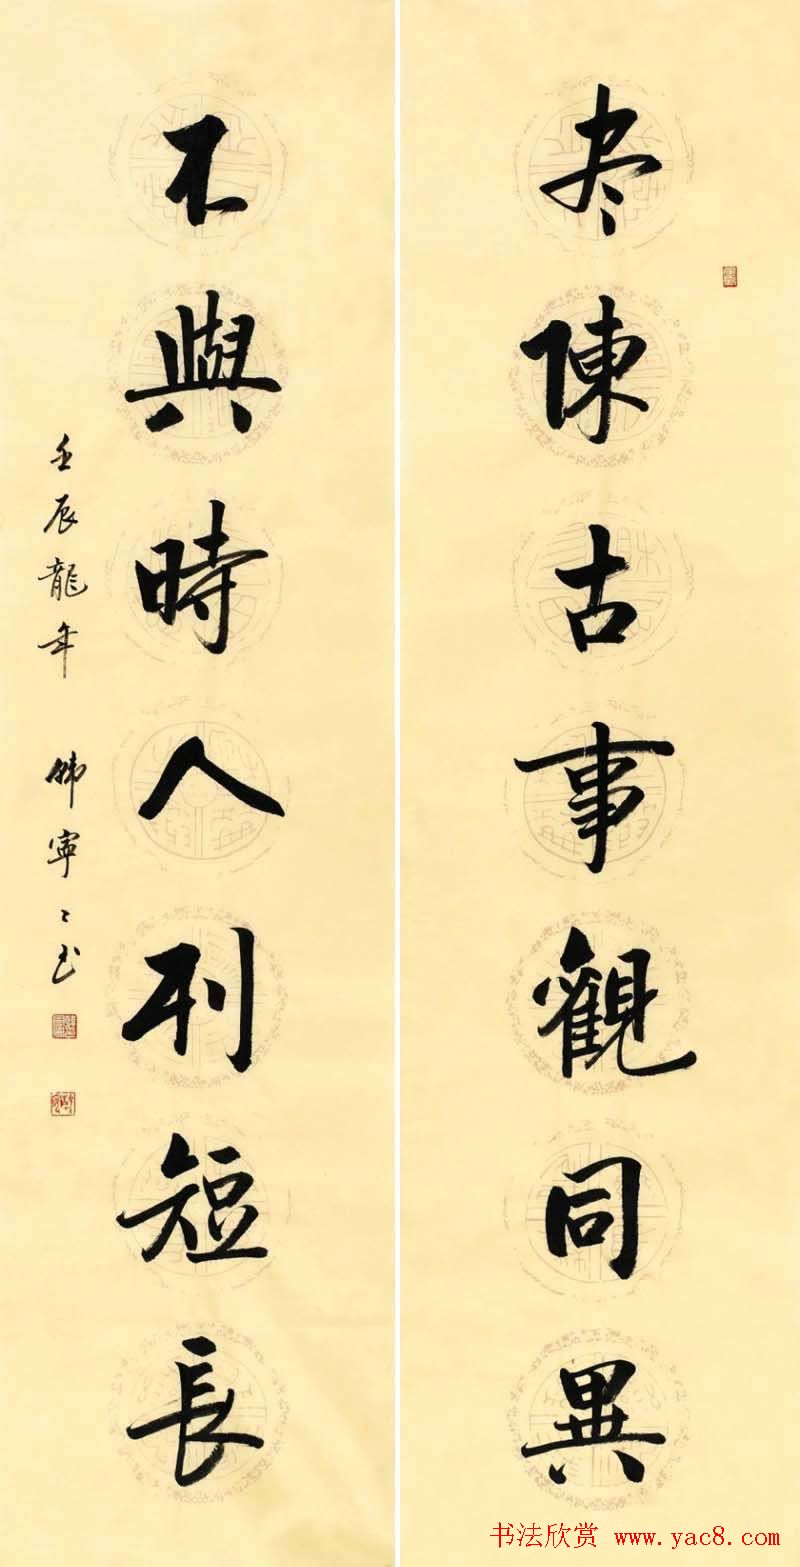 尽陳古事觀同異
不與時人列短長
壬辰龍年 韩寧〻书
书法欣赏 www.yac8.com